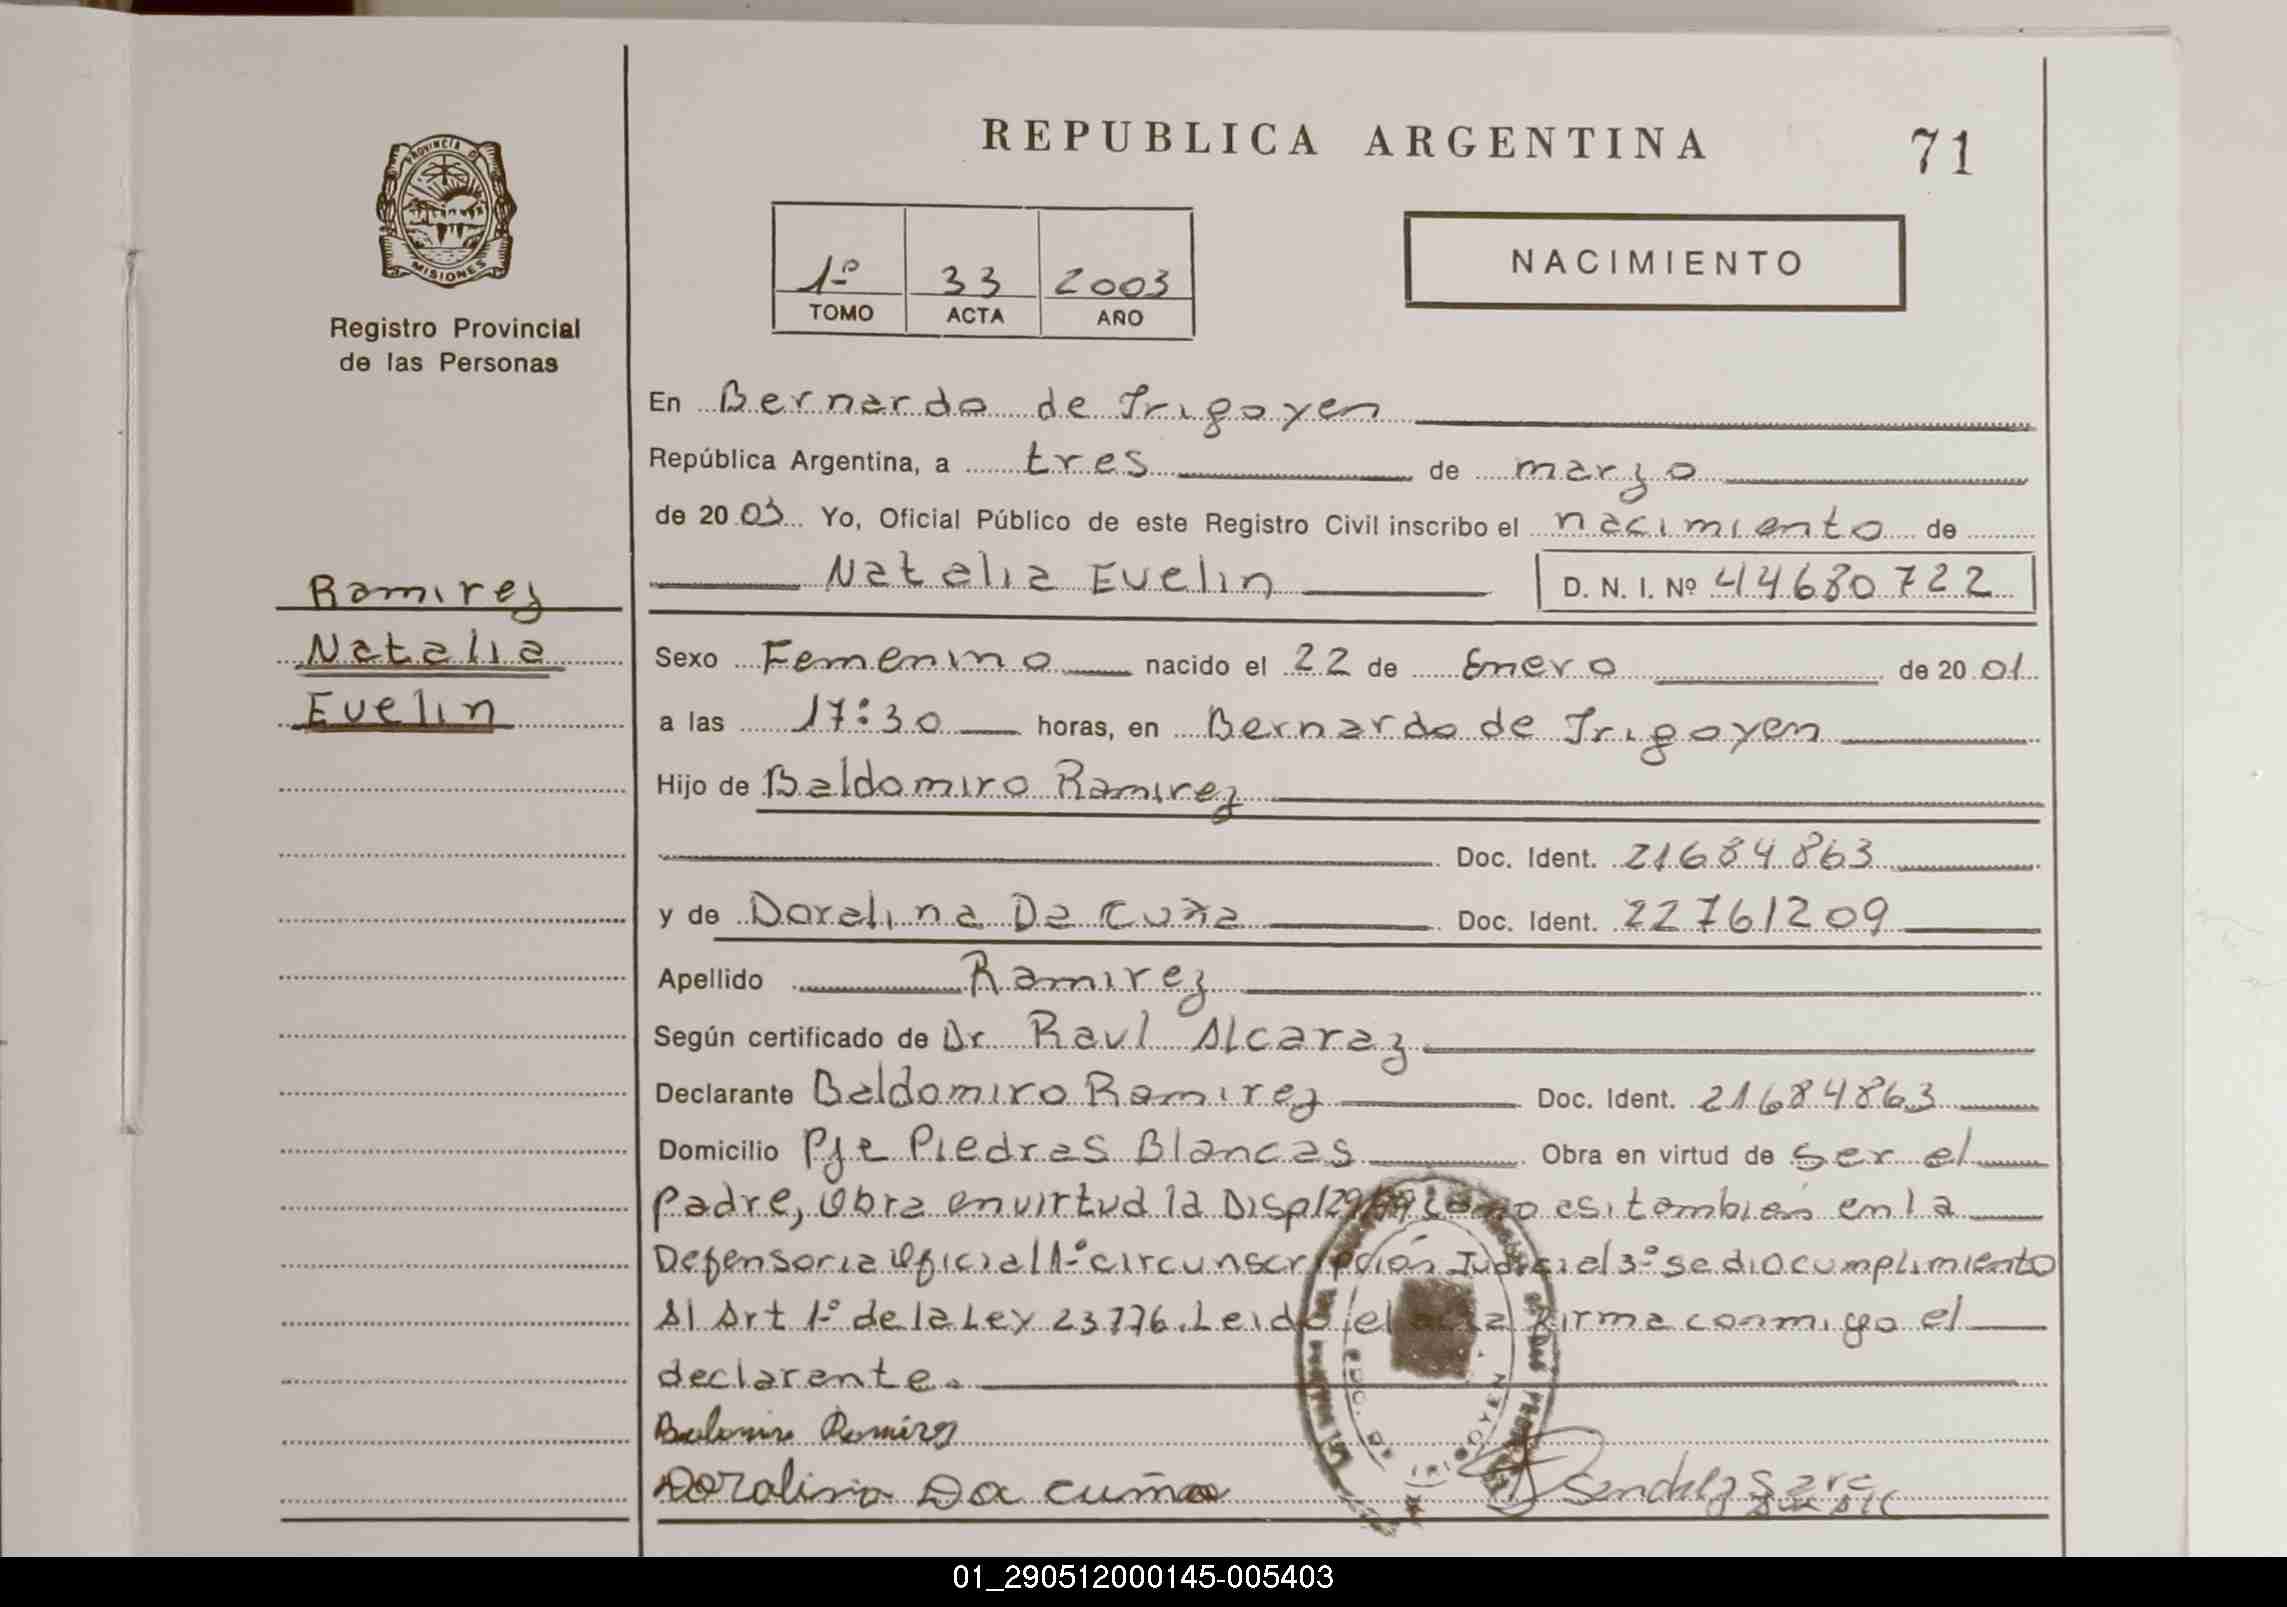 REPUBLICA ARGENTINA
71
PROVINCIA DE
MISIONES
Registro Provincial
de las Personas
1º 33 2003
TOMO ACTA AÑO
NACIMIENTO
En Bernardo de Irigoyen
República Argentina, a tres de marzo
de 2003 Yo, Oficial Público de este Registro Civil inscribo el nacimiento de
Natalia Evelin D. N. I. Nº 44680722
Ramirez
Natalia
Evelin
Sexo Femenino nacido el 22 de Enero de 2001
a las 17:30 horas, en Bernardo de Irigoyen
Hijo de Baldomiro Ramirez
Doc. Ident. 21684863
y de Doralina Da Cuña Doc. Ident. 22761209
Apellido Ramirez
Según certificado de Dr. Raul Alcaraz
Declarante Baldomiro Ramirez Doc. Ident. 21684863
Domicilio Pje Piedras Blancas Obra en virtud de ser el
padre, Obra en virtud la Disp 129/99 como asi tambien en la
Defensoria Oficial 1º circunscripción Judicial 3º se dio cumplimiento
Al Art 1º de la Ley 23776. Leido el acta firma conmigo el
declarante.
Ramirez
Doralina Da cuña
01_290512000145-005403